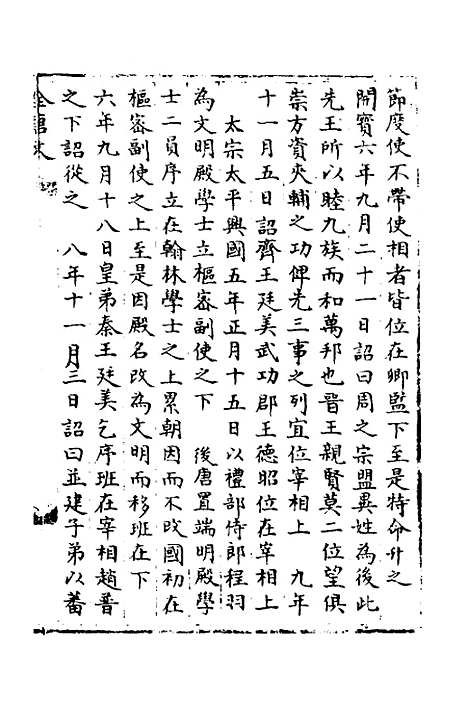 節度使不帶使相者皆位在卿監下至是特命升之
開寶六年九月二十一日詔曰周之宗盟異姓為後此
先王所以睦九族而和萬邦也晉王親賢莫二位望俱
崇方資夾輔之功俾先三事之列宜位宰相上　九年
十一月五日詔齊王廷美武功郡王德昭位在宰相上
太宗太平興國五年正月十五日以禮部侍郎程羽
為文明殿學士立樞密副使之下　後唐置端明殿學
士二員序立在翰林學士之上累朝因而不改國初在
樞密副使之上至是因殿名改為文明而移班在下
六年九月十八日皇弟秦王廷美乞序班在宰相趙普
之下詔從之　八年十一月三日詔曰並建子弟以蕃